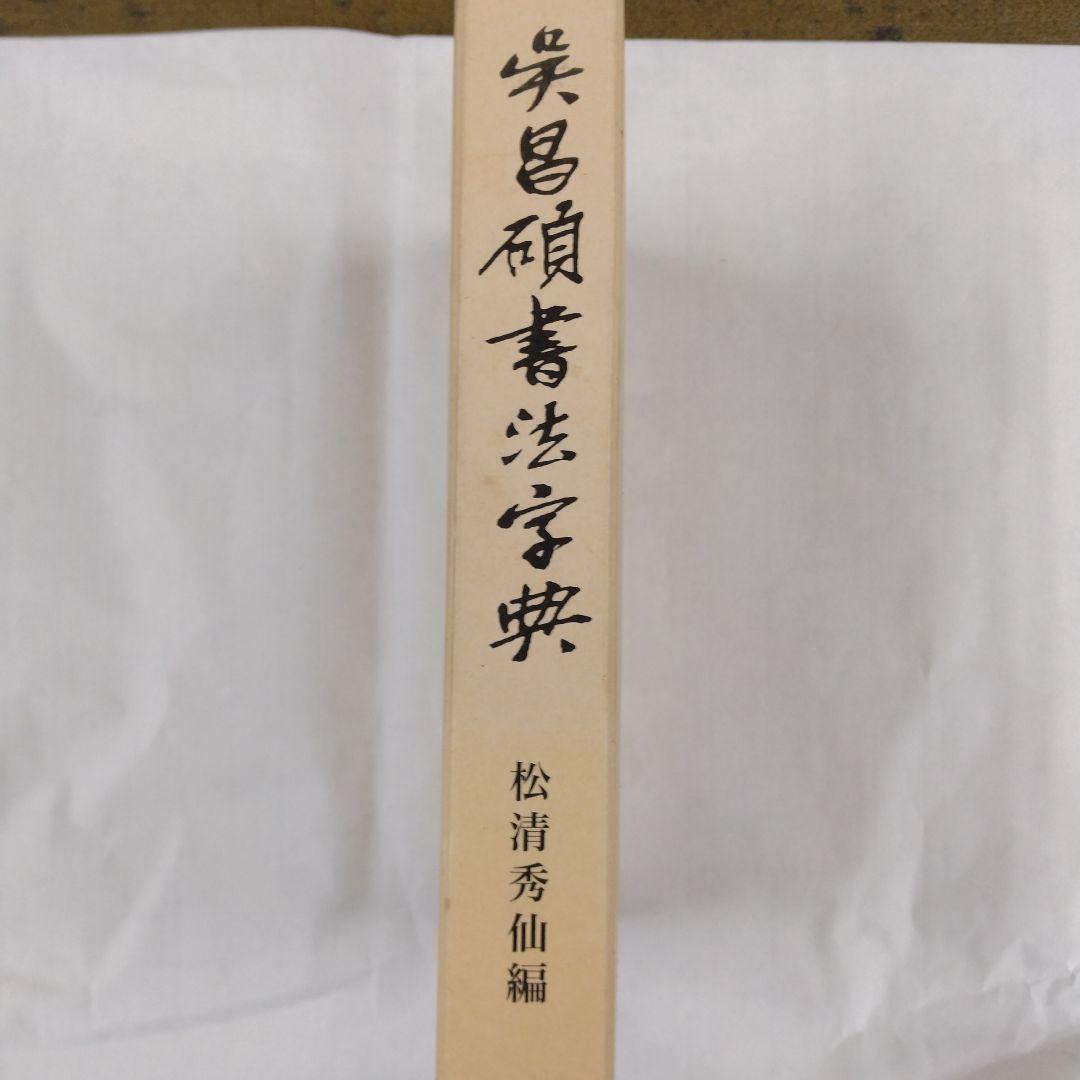 吳昌碩書法字典
松清秀仙編